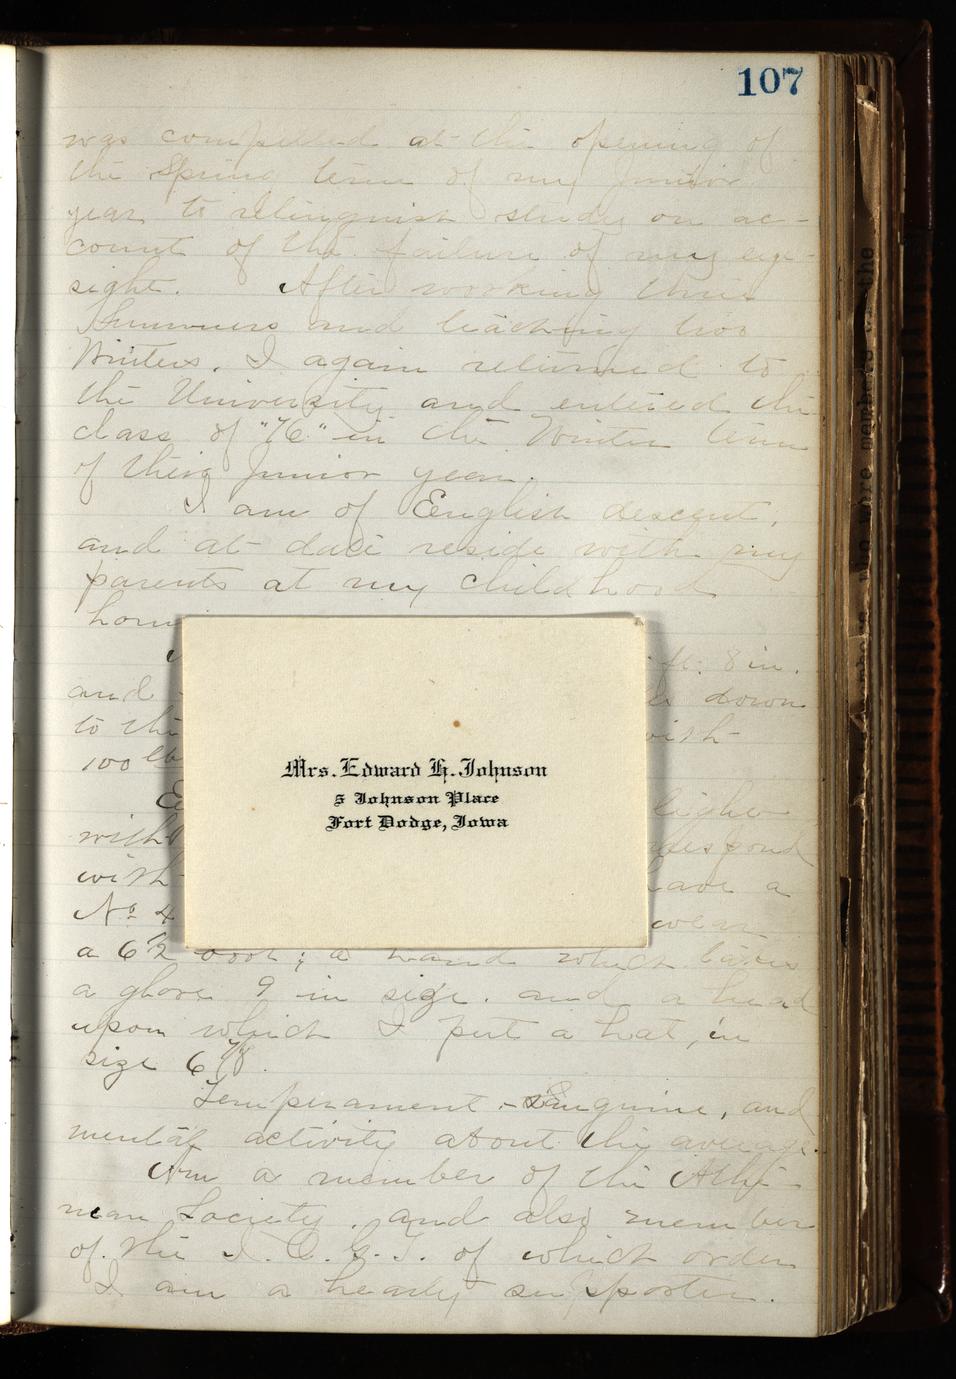 107
was compelled at the opening of
the Spring term of my Junior
year to relinquish study on ac-
count of the failure of my eye-
sight. After working three
Summers and teaching two
Winters, I again returned to
the University and entered the
class of "76" in the Winter term
of their Junior year.
I am of English descent,
and at date reside with my
parents at my childhood
hom
ft. 8 in.
and down
to the with
100 lbs
Mrs. Edward H. Johnson
5 Johnson Place
Fort Dodge, Iowa
with
with have a
No. 4 wear
a 6½ boot; a hand which takes
a glove 9 in size. and a head
upon which I put a hat, in
size 6 7/8.
Temperament - Sanguine, and
mental activity about the average.
Am a member of the Athe-
nean Society, and also member
of the I. O. G. T. of which order
I am a hearty supporter.
who were members of the